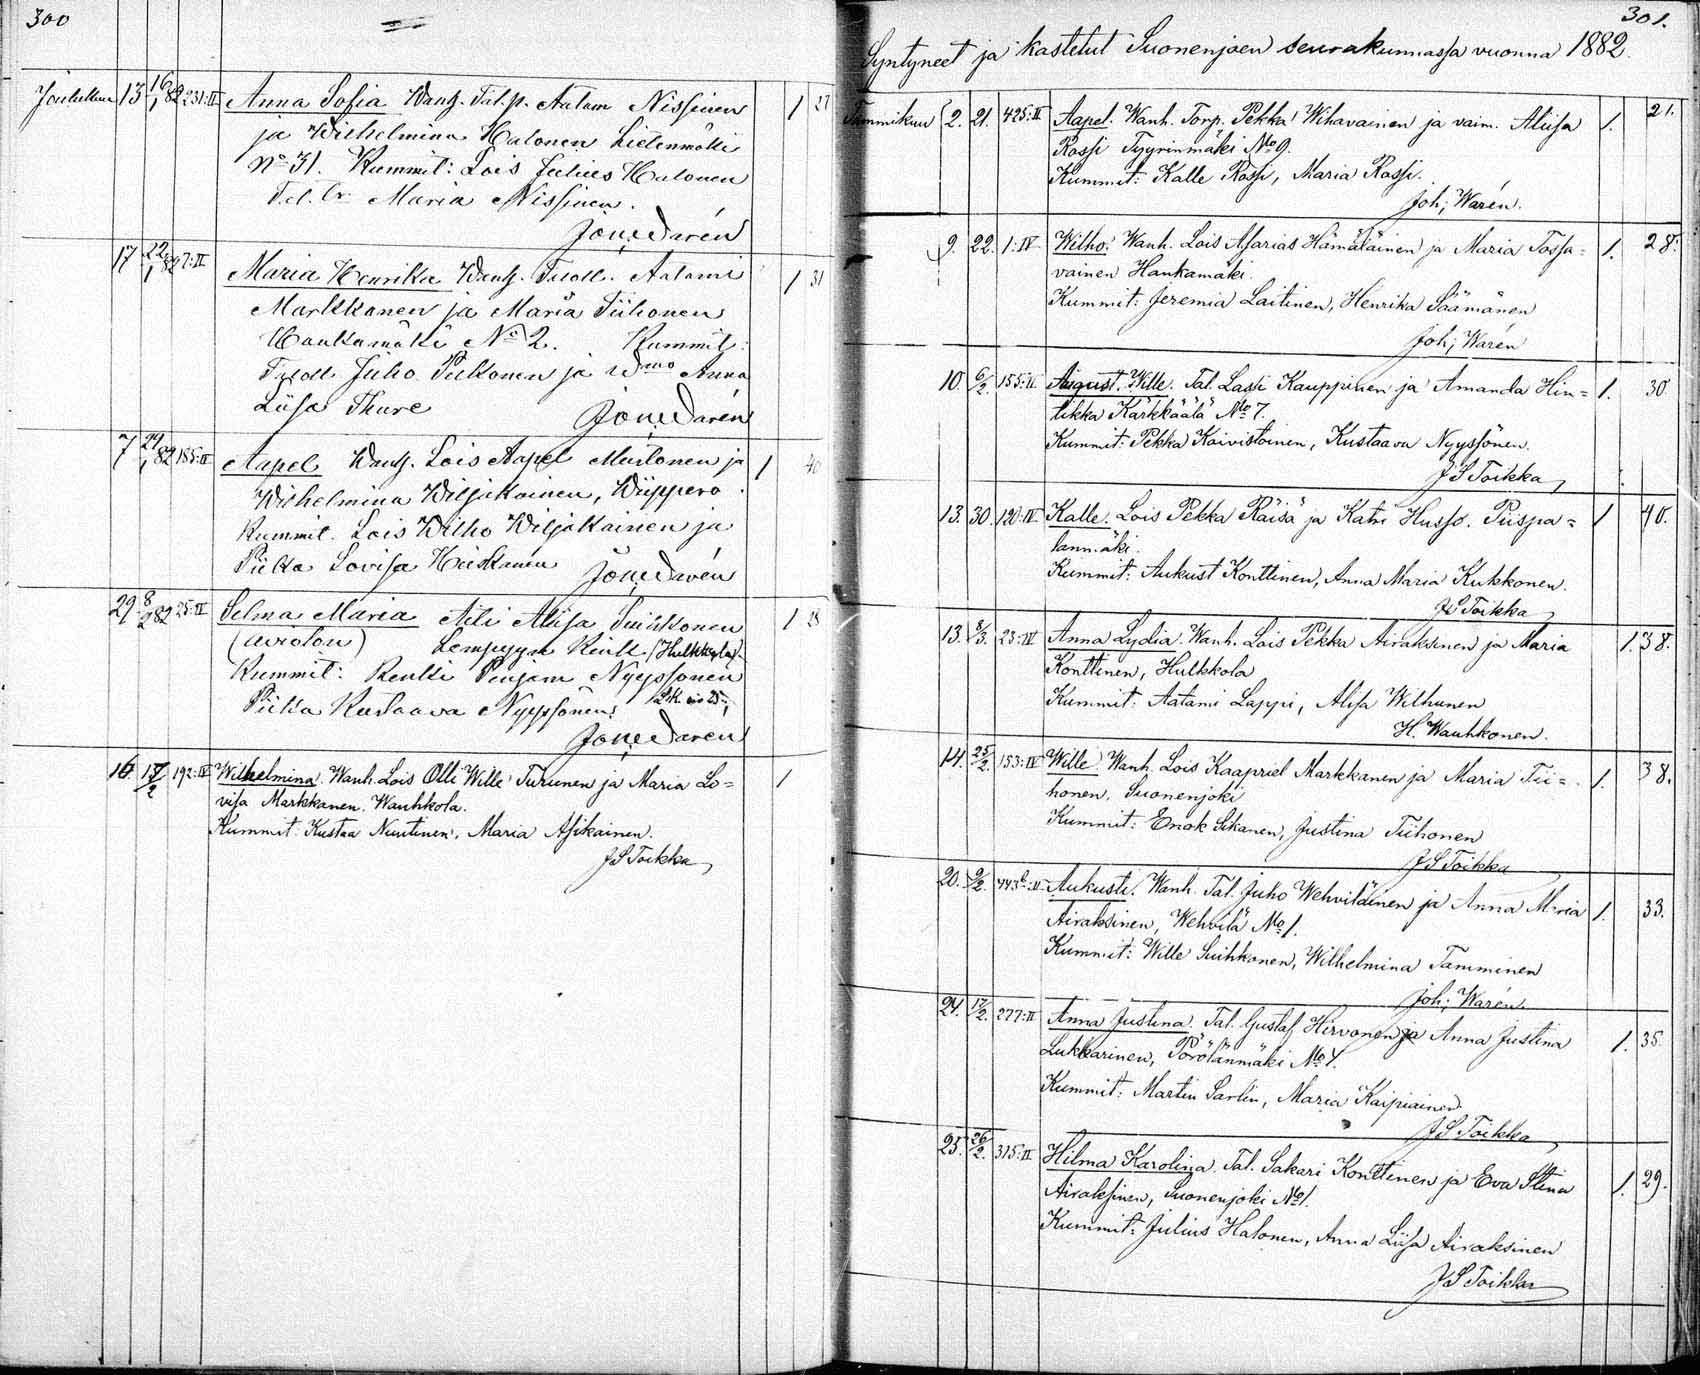 300
Joulukuu 13 16/1 82 231:II Anna Sofia Wanh. Tal. p. Aatam Nissinen 1 27
ja Wilhelmina Halonen Lietenmäki
No 31. Kummit: Lois Julius Halonen
Maria Nissinen.
Joh; Warén
17 22/1 82 7:II Maria Henrika Wanh. Aatami 1 31
Markkanen ja Maria Tiihonen
Haukamäki No 2. Kummit:
Juho Pulkonen ja Anna
Liisa Thure
Joh; Warén
7 29/1 82 185:II Aapel Wanh. Lois Aapel Mustonen ja 1 40
Wilhelmina Wiljakainen, Wiippero
Kummit. Lois Wilho Wiljakainen ja
Piika Lovisa Heiskanen
Joh; Warén
29 8/2 82 25:II Selma Maria Äiti Aliisa Suihkonen 1 28
(avioton) Lempyyn (Hulkkola)
Kummit: Renki Penjam Nyyssönen
Piika Kustaava Nyyssönen.
Joh; Warén
16 192:IV Wilhelmina. Wanh. Lois Olli Wille Turunen ja Maria Lo= 1
visa Markkanen. Wauhkola.
Kummit: Kustaa Nuutinen, Maria Asikainen.
J S Toikka
301.
Syntyneet ja kastetut Suonenjoen seurakunnassa vuonna 1882.
Tammikuu 2. 21. 425:II Aapel. Wanh. Torp. Pekka Wihavainen ja vaim. Aliisa 1. 21.
Rossi Tyyrinmäki No 9.
Kummit: Kalle Rossi, Maria Rossi.
Joh; Warén.
9. 22. 1:IV Wilho. Wanh. Lois Asarias Hämäläinen ja Maria Tossa= 1. 28.
vainen Hankamäki.
Kummit: Jeremia Laitinen, Henrika Säämänen
Joh; Warén
10. 6/2. 155:II August Wille. Tal. Lassi Kauppinen ja Amanda Hin= 1. 30
tikka Kärkkäälä No 7.
Kummit: Pekka Koivistoinen, Kustaava Nyyssönen.
J S Toikka
13. 30. 120:IV Kalle. Lois Pekka Räisä ja Katri Husso. Piispa= 1 40.
lanmäki.
Kummit: Aukust Konttinen, Anna Maria Kukkonen.
J S Toikka
13. 8/3. 23:IV Anna Lydia. Wanh. Lois Pekka Airaksinen ja Maria 1. 38.
Konttinen, Hulkkola
Kummit: Aatami Lappi, Aliisa Wilhunen
H. Wauhkonen.
14. 25/2. 153:IV Wille Wanh. Lois Kaapriel Markkanen ja Maria Tii= 1. 38.
honen. Suonenjoki
Kummit: Enok Sikanen, Justina Tiihonen
J S Toikka
20. 9/2. 443b:II Aukusti. Wanh. Tal. Juho Wehviläinen ja Anna Maria 1. 33.
Airaksinen, Wehvilä No 1.
Kummit: Wille Suihkonen, Wilhelmina Tamminen
Joh; Warén.
24. 12/2. 277:II Anna Justina. Tal. Gustaf Hirvonen ja Anna Justina 1. 35.
Lukkarinen, Pörölänmäki No 4.
Kummit: Martin Sarlin, Maria Kaipiainen.
J S Toikka
25. 26/2. 315:II Hilma Karolina. Tal. Sakari Konttinen ja Eva Stina 1. 29.
Airaksinen, Suonenjoki No 1.
Kummit: Julius Halonen, Anna Liisa Airaksinen
J S Toikka